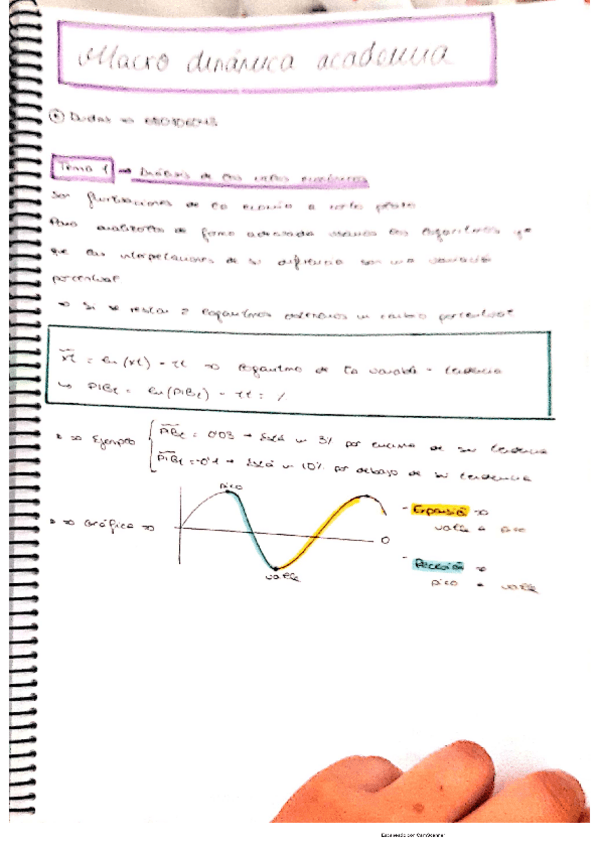 Macro dinámica academia
Dudas ⇒
Tema 1 → Análisis de los ciclos económicos
Son fluctuaciones de la economía a corto plazo
Para analizarlos de forma adecuada usamos los logaritmos ya
que las interpretaciones de su diferencia son una variación
porcentual
⇒ Si se restan 2 logaritmos obtenemos un cambio porcentual
x̃t = ln(xt) - τt ⇒ logaritmo de la variable - tendencia
↳ PIBt = ln(PIBt) - τt = /
⇒ Ejemplo
PIBt = 0'03 → Está un 3% por encima de su tendencia
PIBt = -0'1 → Está un 10% por debajo de su tendencia
pico
⇒ Gráfica ⇒
0
valle
- Expansión ⇒
valle a pico
- Recesión ⇒
pico a valle
Escaneado con CamScanner